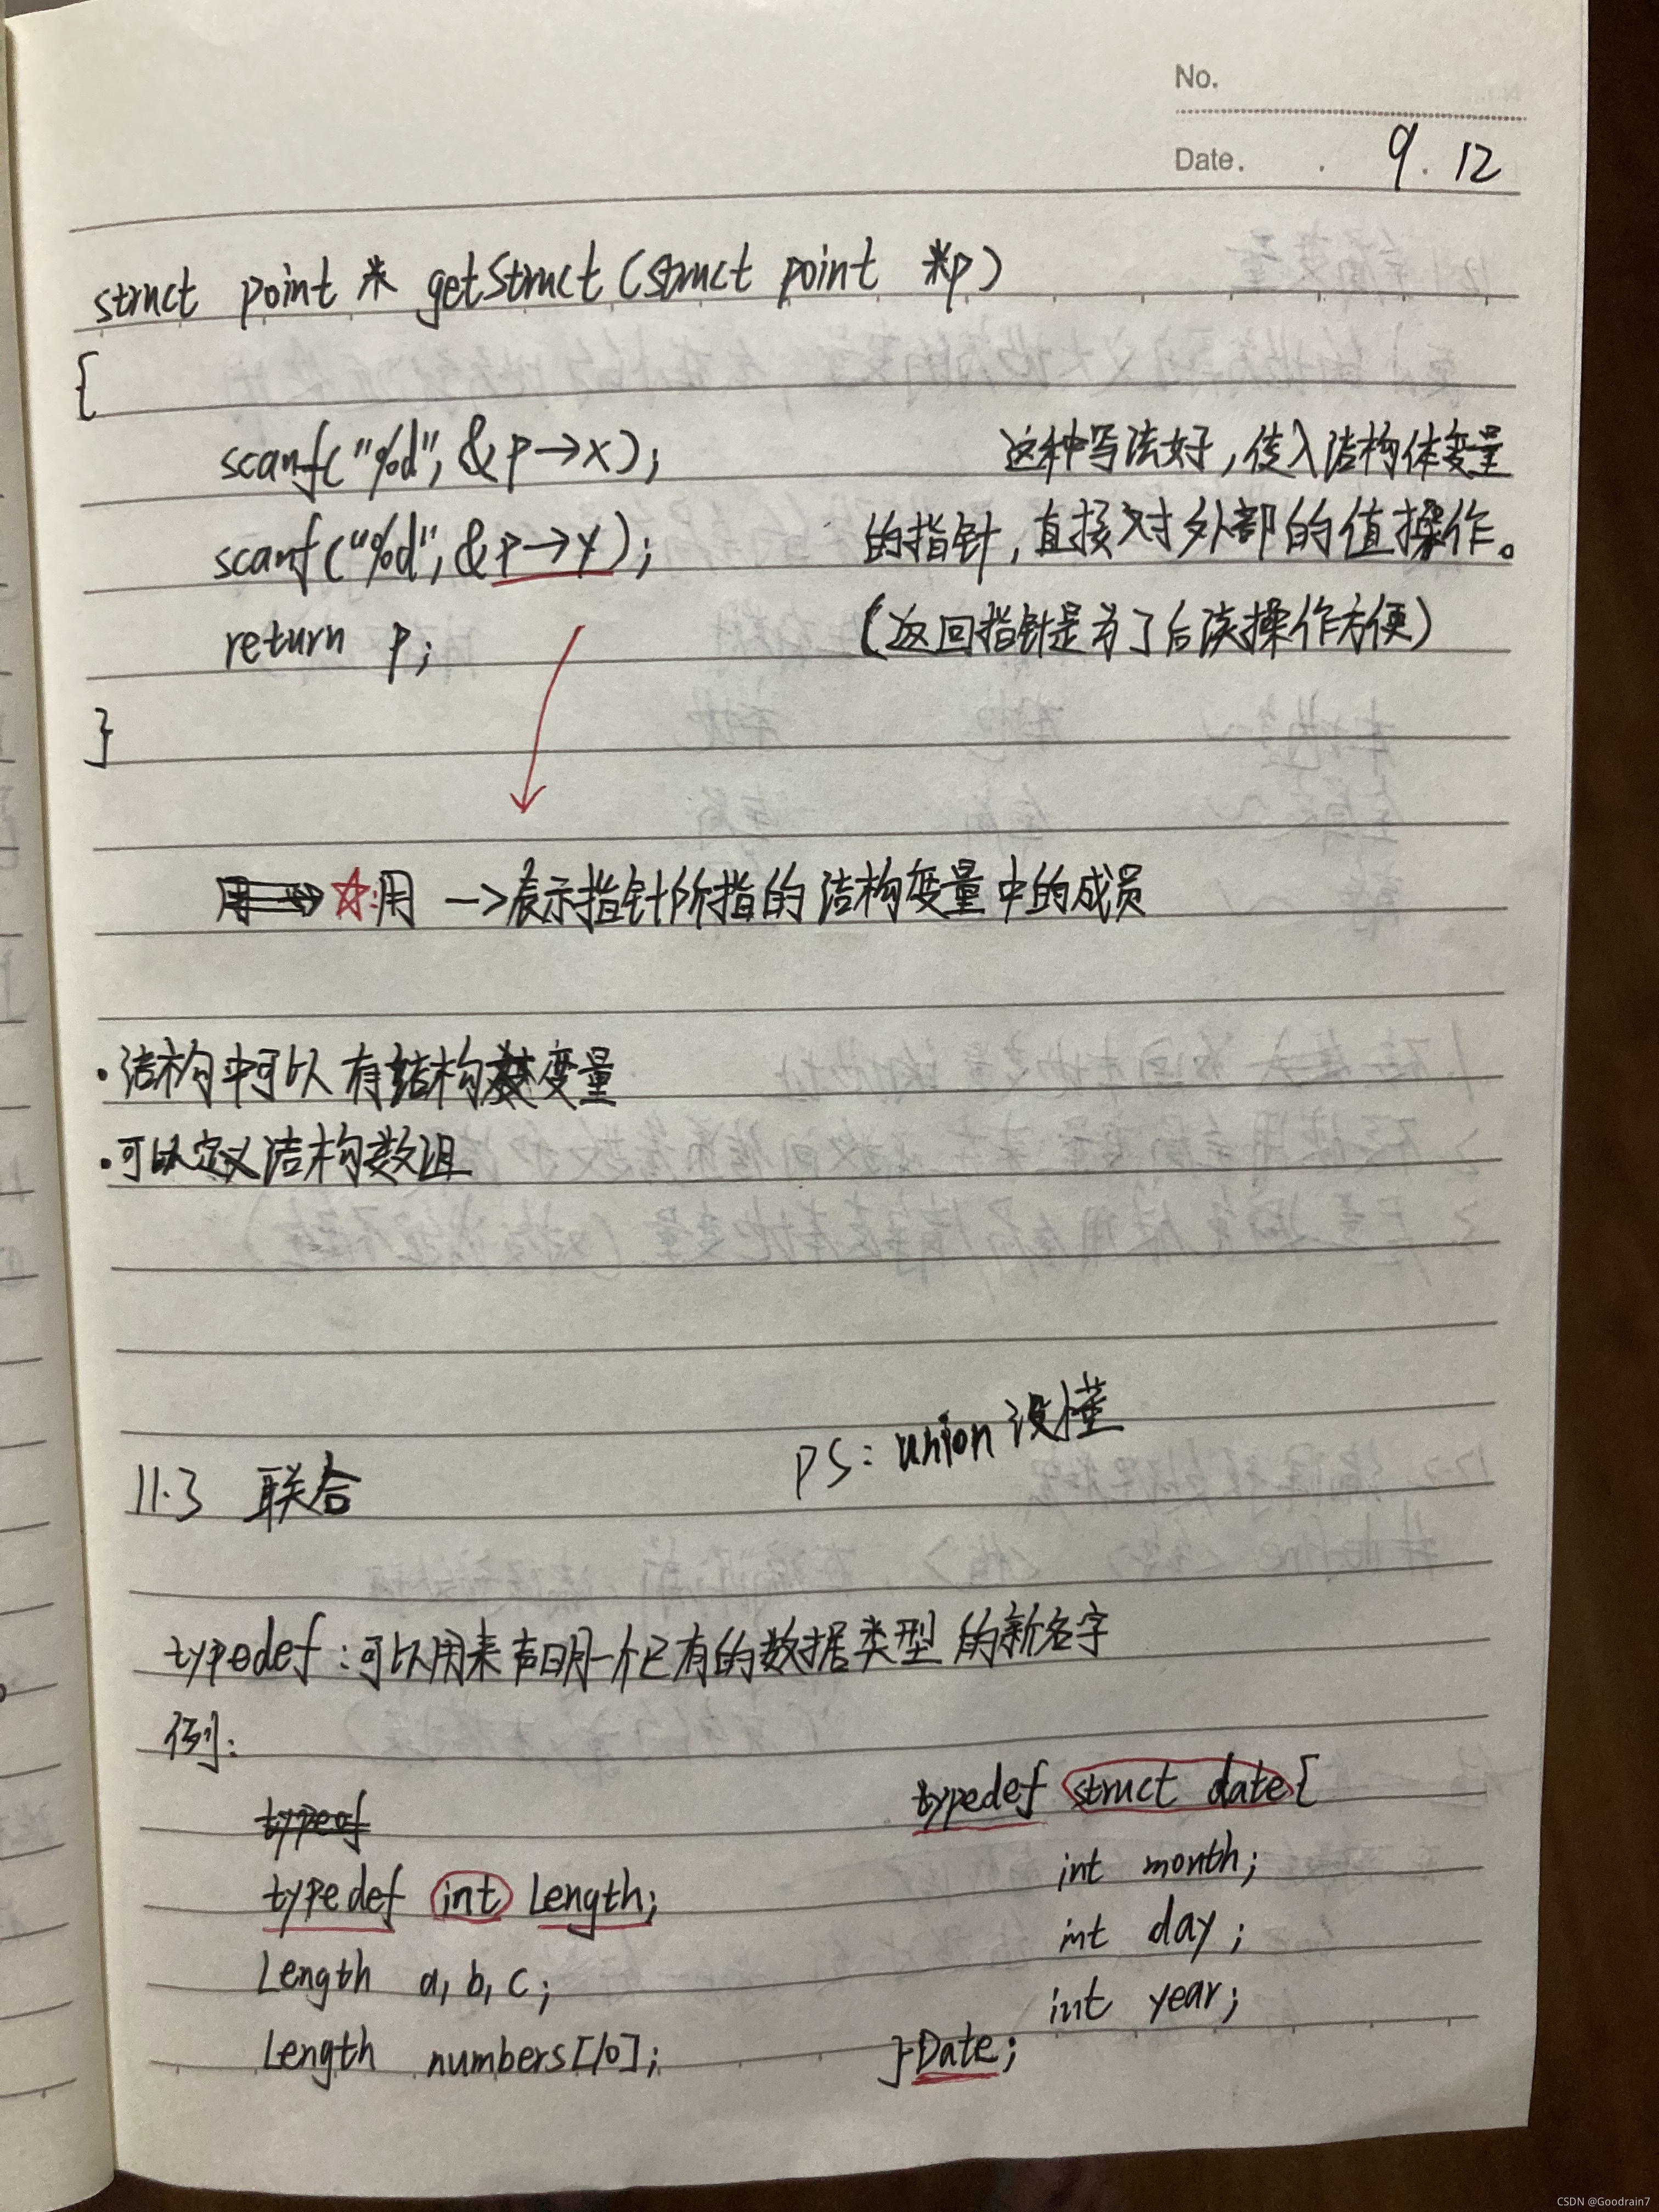 No.
Date. . 9.12
struct point * getStruct(struct point *p)
{
scanf("%d", &p->x); 这种写法好，传入结构体变量
scanf("%d", &p->y); 的指针，直接对外部的值操作。
return p; (返回指针是为了后续操作方便)
}
☆:用 —>表示指针所指的结构变量中的成员
·结构中可以有结构变量
·可以定义结构数组
PS: union 没懂
11.3 联合
typedef:可以用来声明一个已有的数据类型的新名字
例:
typeof
typedef struct date{
typedef int Length;
int month;
int day;
Length a, b, c;
int year;
Length numbers[10];
}Date;
CSDN @Goodrain7